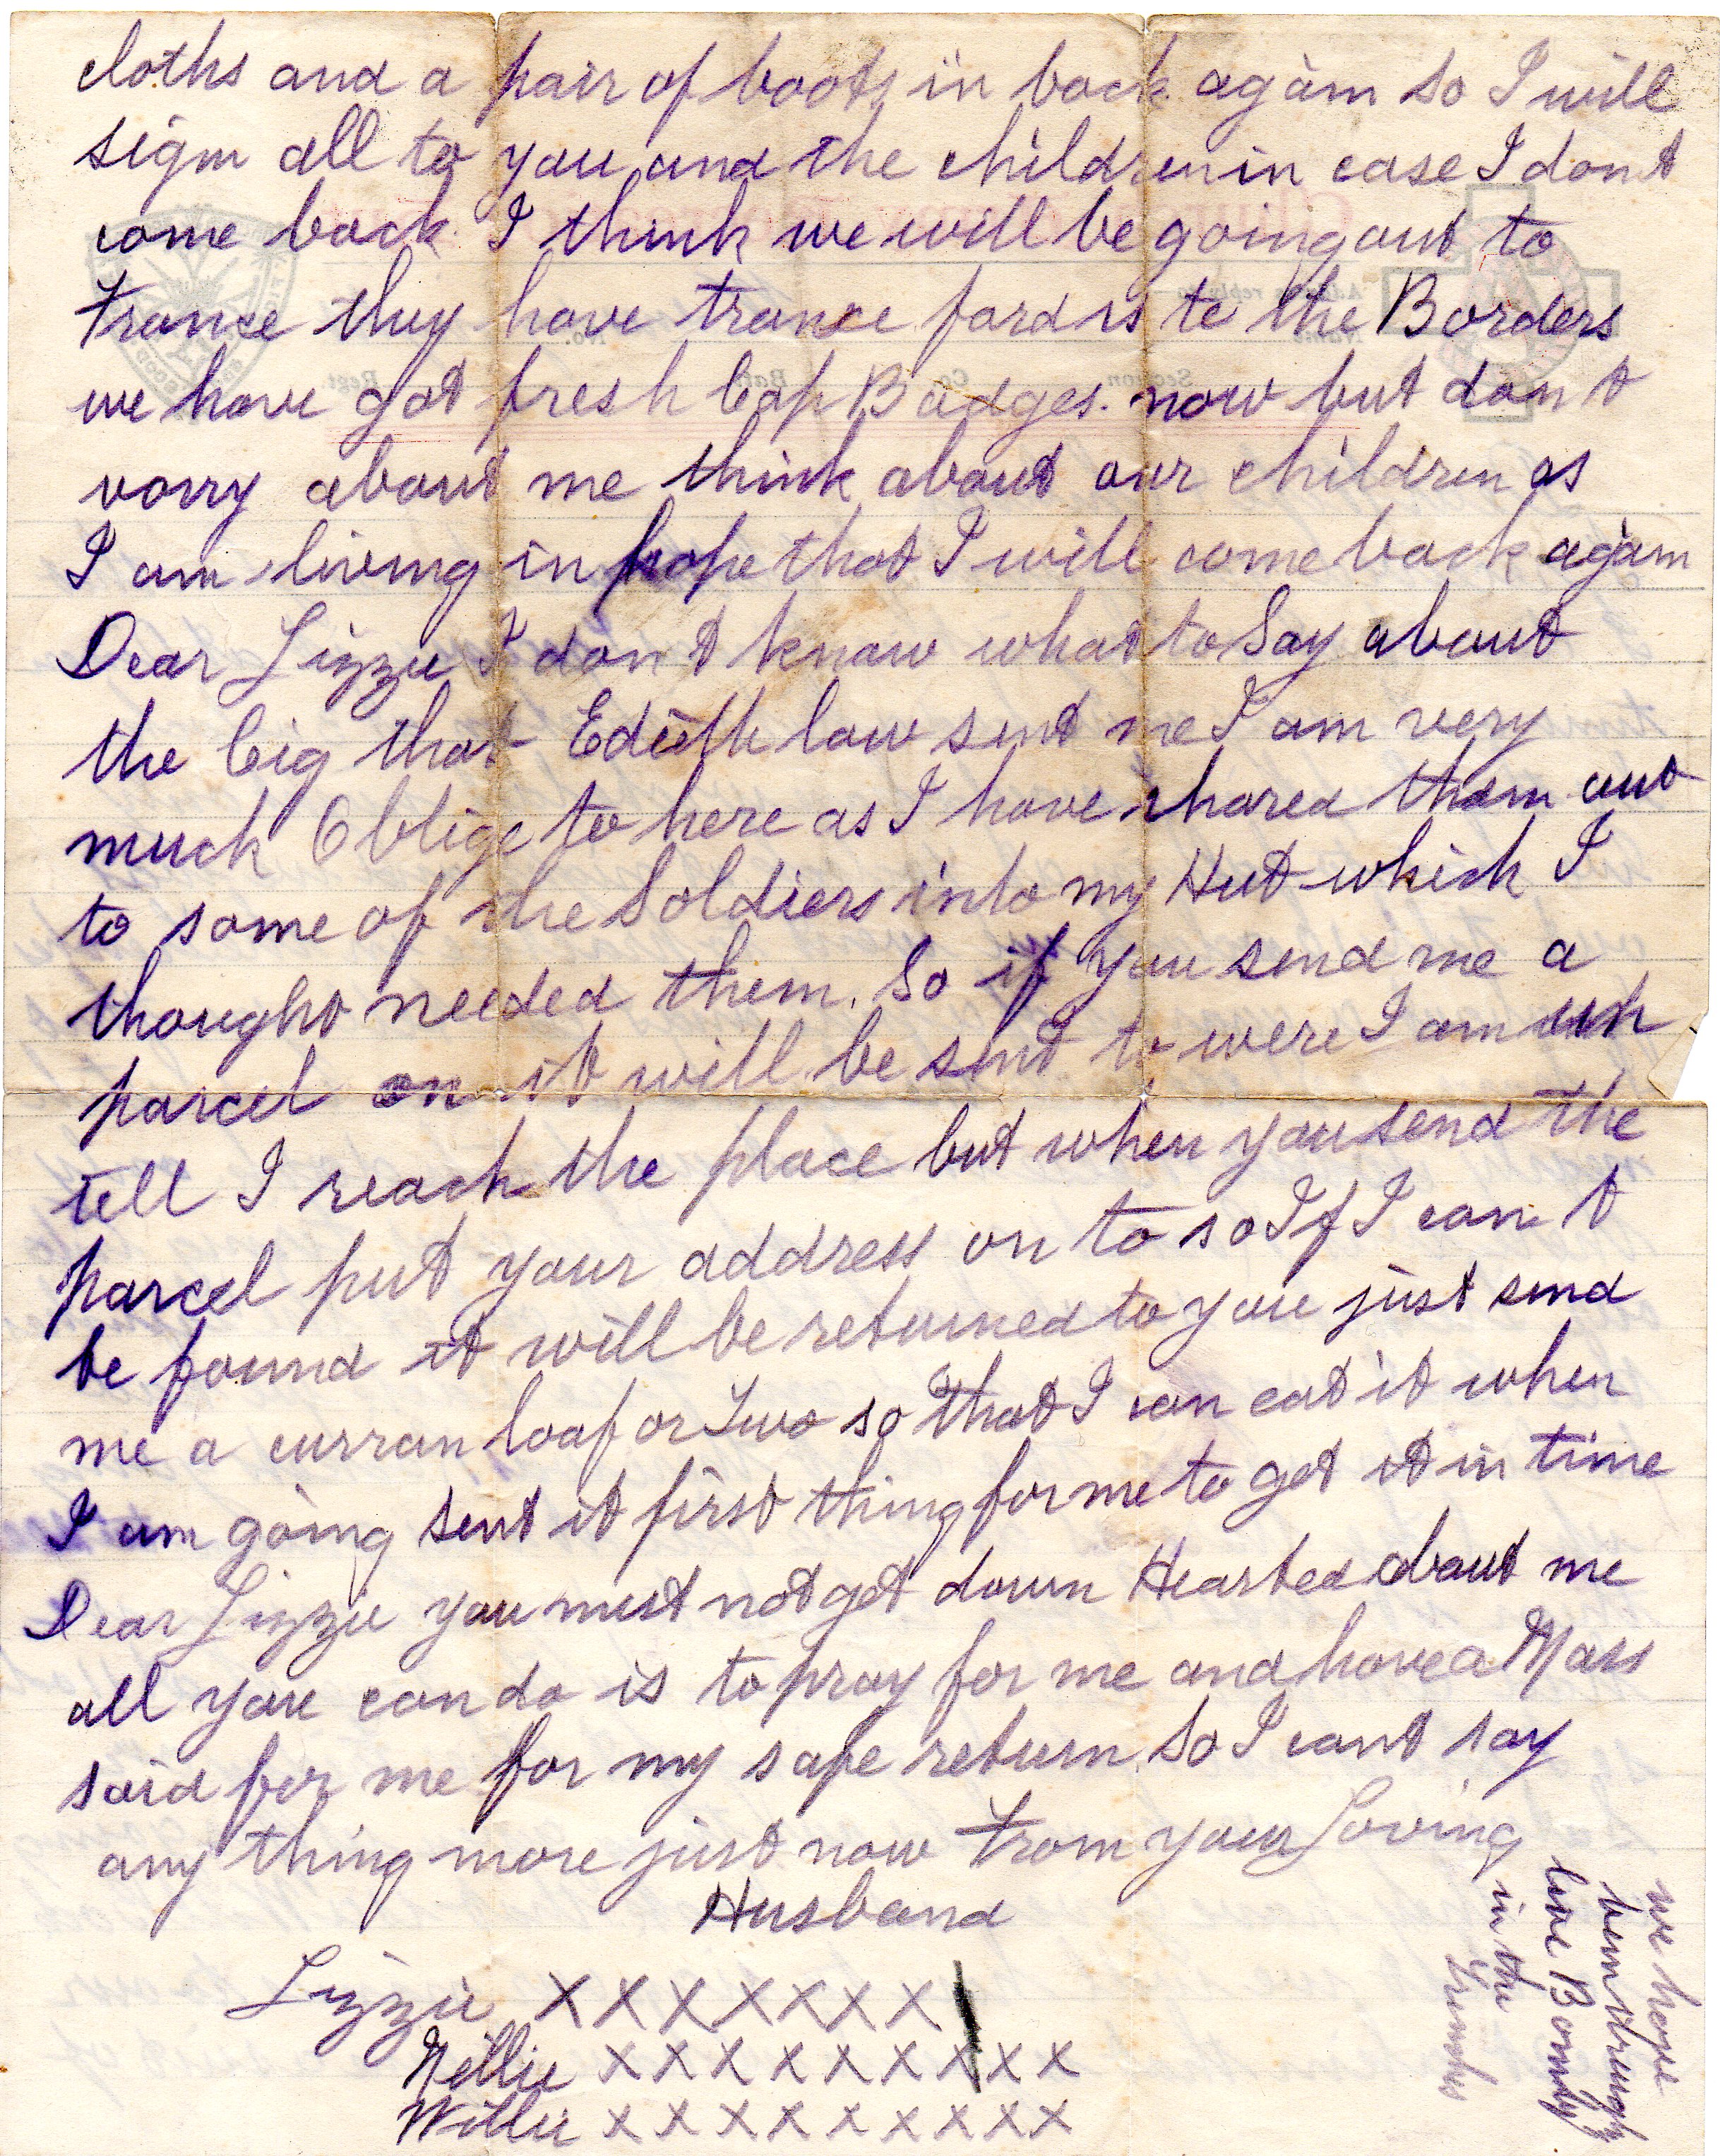 cloths and a pair of boots in back again so I will
sign all to you and the children in case I dont
come back. I think we will be going out to
France they have trance fard us to the Borders
we have got fresh Cap Badges. now but don t
vorry about me think about our children as
I am living in hope that I will come back again
Dear Lizzie I don t know what to Say about
the Cig that Edieth law sent me I am very
much Oblige to here as I have shared them out
to some of the Soldiers into my Hut which I
thought needed them. So if you send me a
parcel on it will be sent to were I am
tell I reach the place but when you send the
parcel put your address on to so If I can t
be found it will be returned to you just send
me a curran loaf or Two so that I can eat it when
I am going sent it first thing for me to get it in time
Dear Lizzie you must not get down Hearted about me
all you can do is to pray for me and have a Mass
said for me for my safe return. So I cant say
any thing more just now From your Loving
Husband
Lizzie X X X X X X X
Nellie X X X X X X X X X
Willie X X X X X X X X X
we have
bem through
live Bomdy
in the
Trenches
Section
Co.
Batt.
Regt.
Name
No.